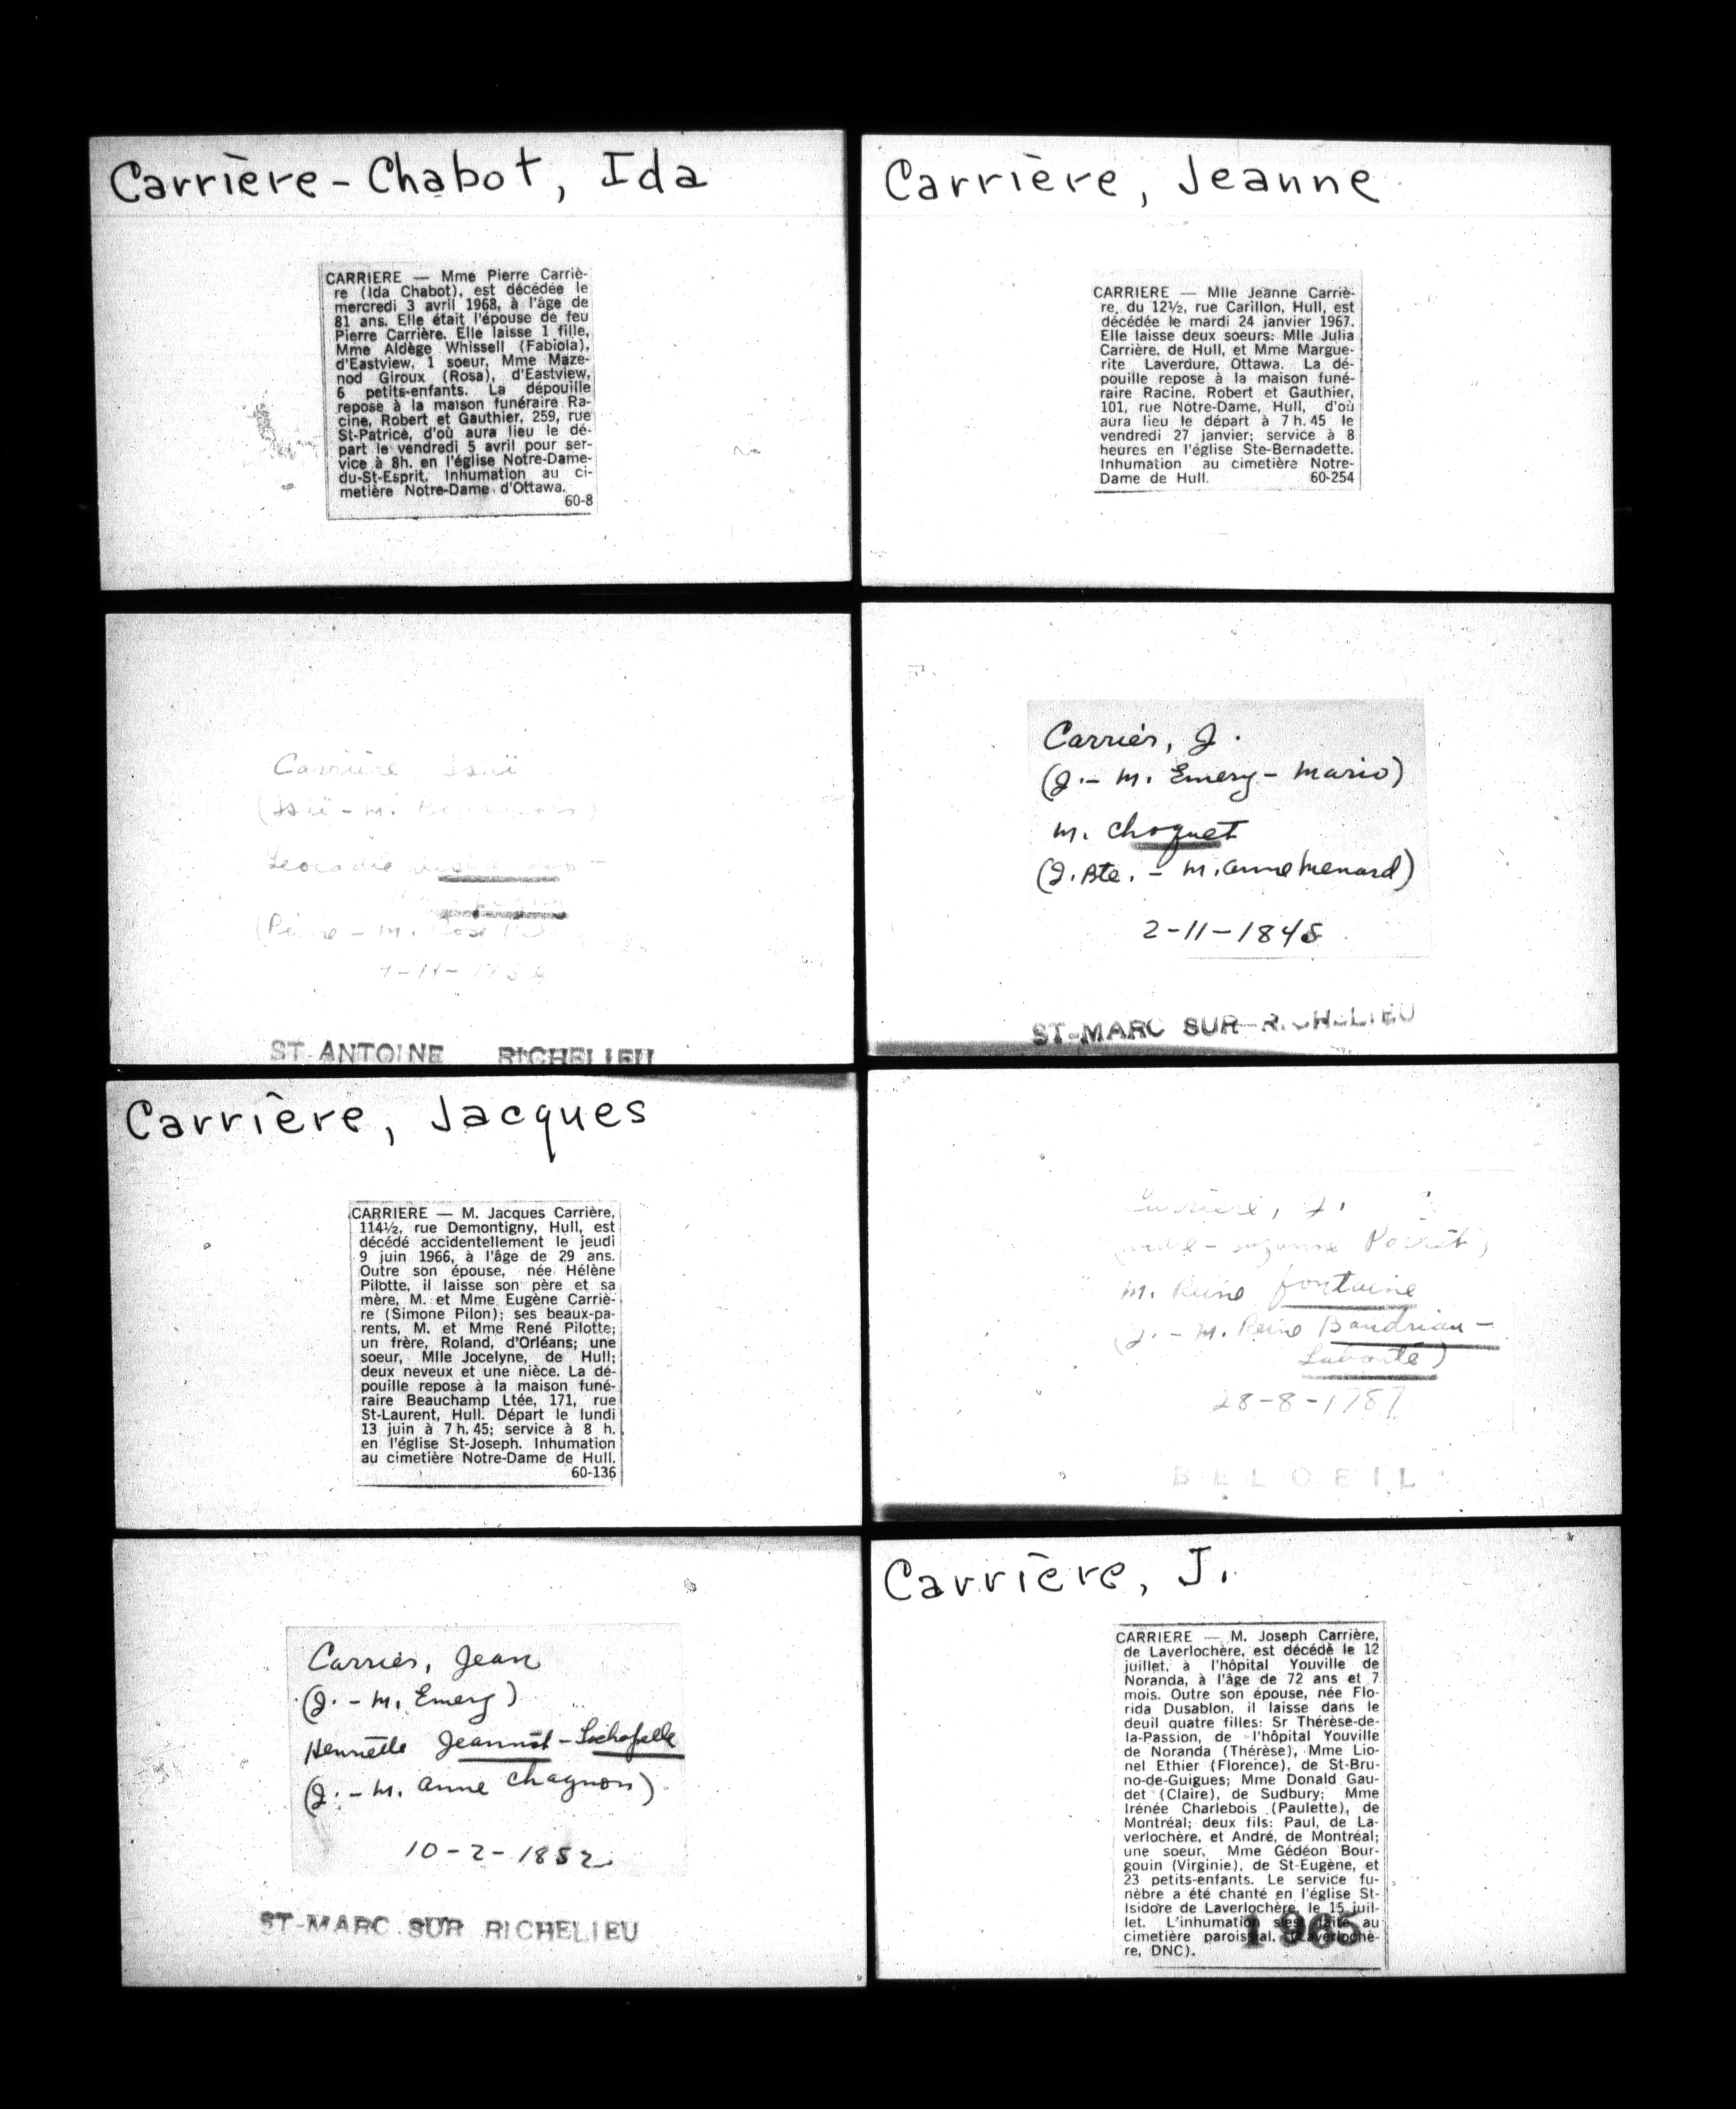 Carrière-Chabot, Ida
CARRIERE — Mme Pierre Carriè-
re (Ida Chabot), est décédée le
mercredi 3 avril 1968, à l'âge de
81 ans. Elle était l'épouse de feu
Pierre Carrière. Elle laisse 1 fille,
Mme Aldège Whissell (Fabiola),
d'Eastview, 1 soeur, Mme Maze-
nod Giroux (Rosa), d'Eastview,
6 petits-enfants. La dépouille
repose à la maison funéraire Ra-
cine, Robert et Gauthier, 259, rue
St-Patrice, d'où aura lieu le dé-
part le vendredi 5 avril pour ser-
vice à 8h. en l'église Notre-Dame-
du-St-Esprit. Inhumation au ci-
metière Notre-Dame d'Ottawa.
60-8
Carrière, Jeanne
CARRIERE — Mlle Jeanne Carriè-
re, du 12½, rue Carillon, Hull, est
décédée le mardi 24 janvier 1967.
Elle laisse deux soeurs: Mlle Julia
Carrière, de Hull, et Mme Margue-
rite Laverdure, Ottawa. La dé-
pouille repose à la maison funé-
raire Racine, Robert et Gauthier,
101, rue Notre-Dame, Hull, d'où
aura lieu le départ à 7 h. 45 le
vendredi 27 janvier; service à 8
heures en l'église Ste-Bernadette.
Inhumation au cimetière Notre-
Dame de Hull. 60-254
Carrière
Leocadie
ST-ANTOINE RICHELIEU
Carriès, J.
(J. - M. Emery - Mario)
m. Choquet
(J. Bte. - M. Anne Menard)
2-11-1845
ST-MARC SUR-RICHELIEU
Carrière, Jacques
CARRIERE — M. Jacques Carrière,
114½, rue Demontigny, Hull, est
décédé accidentellement le jeudi
9 juin 1966, à l'âge de 29 ans.
Outre son épouse, née Hélène
Pilotte, il laisse son père et sa
mère, M. et Mme Eugène Carriè-
re (Simone Pilon); ses beaux-pa-
rents, M. et Mme René Pilotte;
un frère, Roland, d'Orléans; une
soeur, Mlle Jocelyne, de Hull;
deux neveux et une nièce. La dé-
pouille repose à la maison funé-
raire Beauchamp Ltée, 171, rue
St-Laurent, Hull. Départ le lundi
13 juin à 7 h. 45; service à 8 h.
en l'église St-Joseph. Inhumation
au cimetière Notre-Dame de Hull.
60-136
Carrière, J.
m. Reine fontaine
(J. - M. Reine Baudriau -
Labonté)
28-8-1787
BELOEIL
Carriès, Jean
(J. - M. Emery)
Henriette Jeannot-Lachapelle
(J. - M. Anne Chagnon)
10-2-1852
ST-MARC SUR RICHELIEU
Carrière, J.
CARRIERE — M. Joseph Carrière,
de Laverlochère, est décédé le 12
juillet, à l'hôpital Youville de
Noranda, à l'âge de 72 ans et 7
mois. Outre son épouse, née Flo-
rida Dusablon, il laisse dans le
deuil quatre filles: Sr Thérèse-de-
la-Passion, de l'hôpital Youville
de Noranda (Thérèse), Mme Lio-
nel Ethier (Florence), de St-Bru-
no-de-Guigues; Mme Donald Gau-
det (Claire), de Sudbury; Mme
Irénée Charlebois (Paulette), de
Montréal; deux fils: Paul, de La-
verlochère, et André, de Montréal;
une soeur, Mme Gédéon Bour-
gouin (Virginie), de St-Eugène, et
23 petits-enfants. Le service fu-
nèbre a été chanté en l'église St-
Isidore de Laverlochère, le 15 juil-
let. L'inhumation s'est faite au
cimetière paroissial. (Laverlochè-
re, DNC).
1965